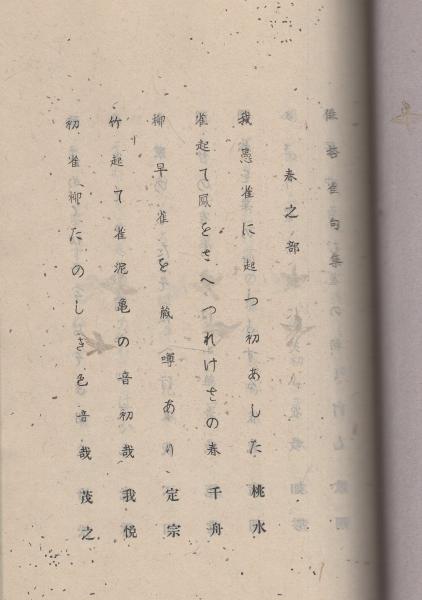 俳諧雀句集
春之部
我愚雀に起つ初あした 桃水
雀起て鳳をさへつれけさの春 千舟
柳早雀を蔵噂あり 定宗
竹起て雀泥亀の音初哉 我悦
初雀柳たのしき色音哉 茂之